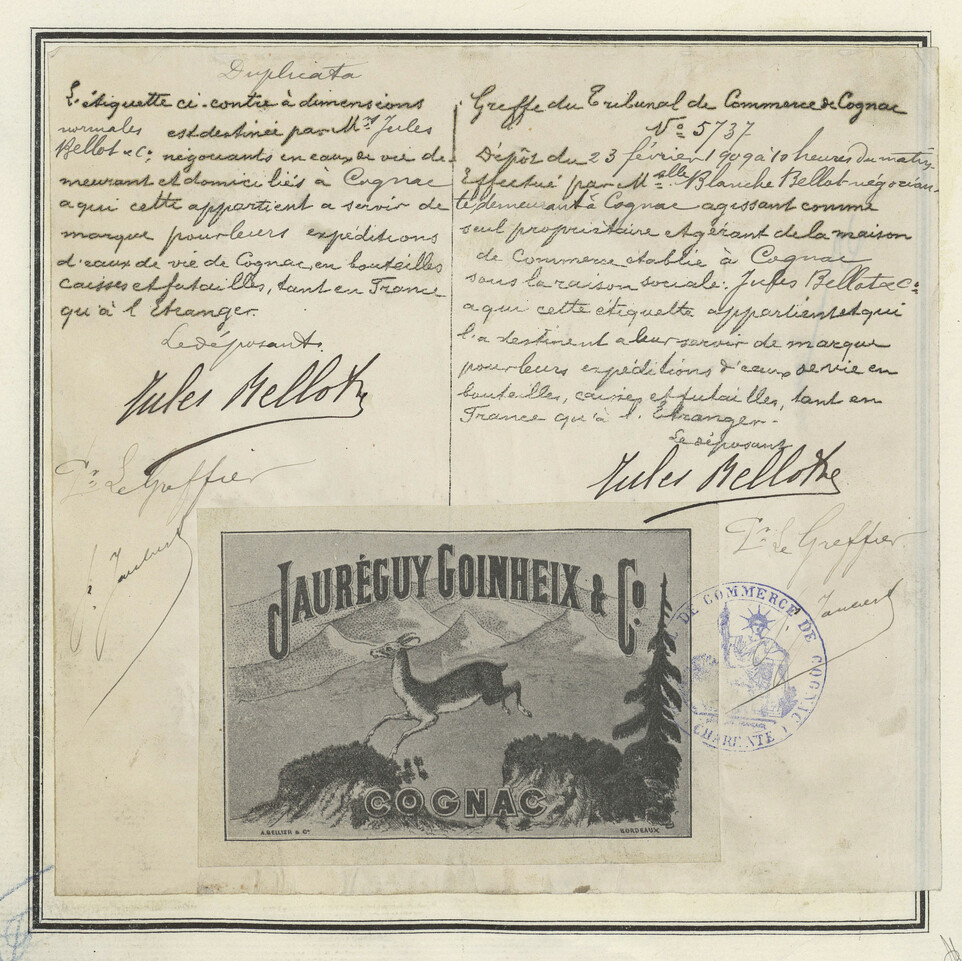 Duplicata
L'étiquette ci-contre à dimensions
normales est destinée par Mrs Jules
Bellot & Co. négociants en eaux de vie de-
meurant et domiciliés à Cognac
a qui cette appartient a servir de
marque pour leurs expéditions
d'eaux de vie de Cognac, en bouteilles
caisses et futailles, tant en France
qu'à l'Etranger.
Le déposant.
Jules Bellot & Co
Pr Le Greffier
Greffe du Tribunal de Commerce de Cognac
No 5737
Dépôt du 23 février 1909 à 10 heures du matin
Effectué par Mselle Blanche Bellot négocian-
te, demeurant à Cognac agissant comme
seul propriétaire et gérant de la maison
de Commerce etablie à Cognac
sous la raison sociale: Jules Bellot & Co
a qui cette étiquette appartient et qui
l'a destinent a leur servir de marque
pour leurs expéditions d'eaux de vie en
bouteilles, caisses et futailles, tant en
France qu'à l'Etranger.-
Le déposant
Jules Bellot & Co
Pr Le Greffier
JAURÉGUY GOINHEIX & Co.
COGNAC
A. BELLIER & Cie
BORDEAUX
DE COMMERCE DE COGNAC
CHARENTE